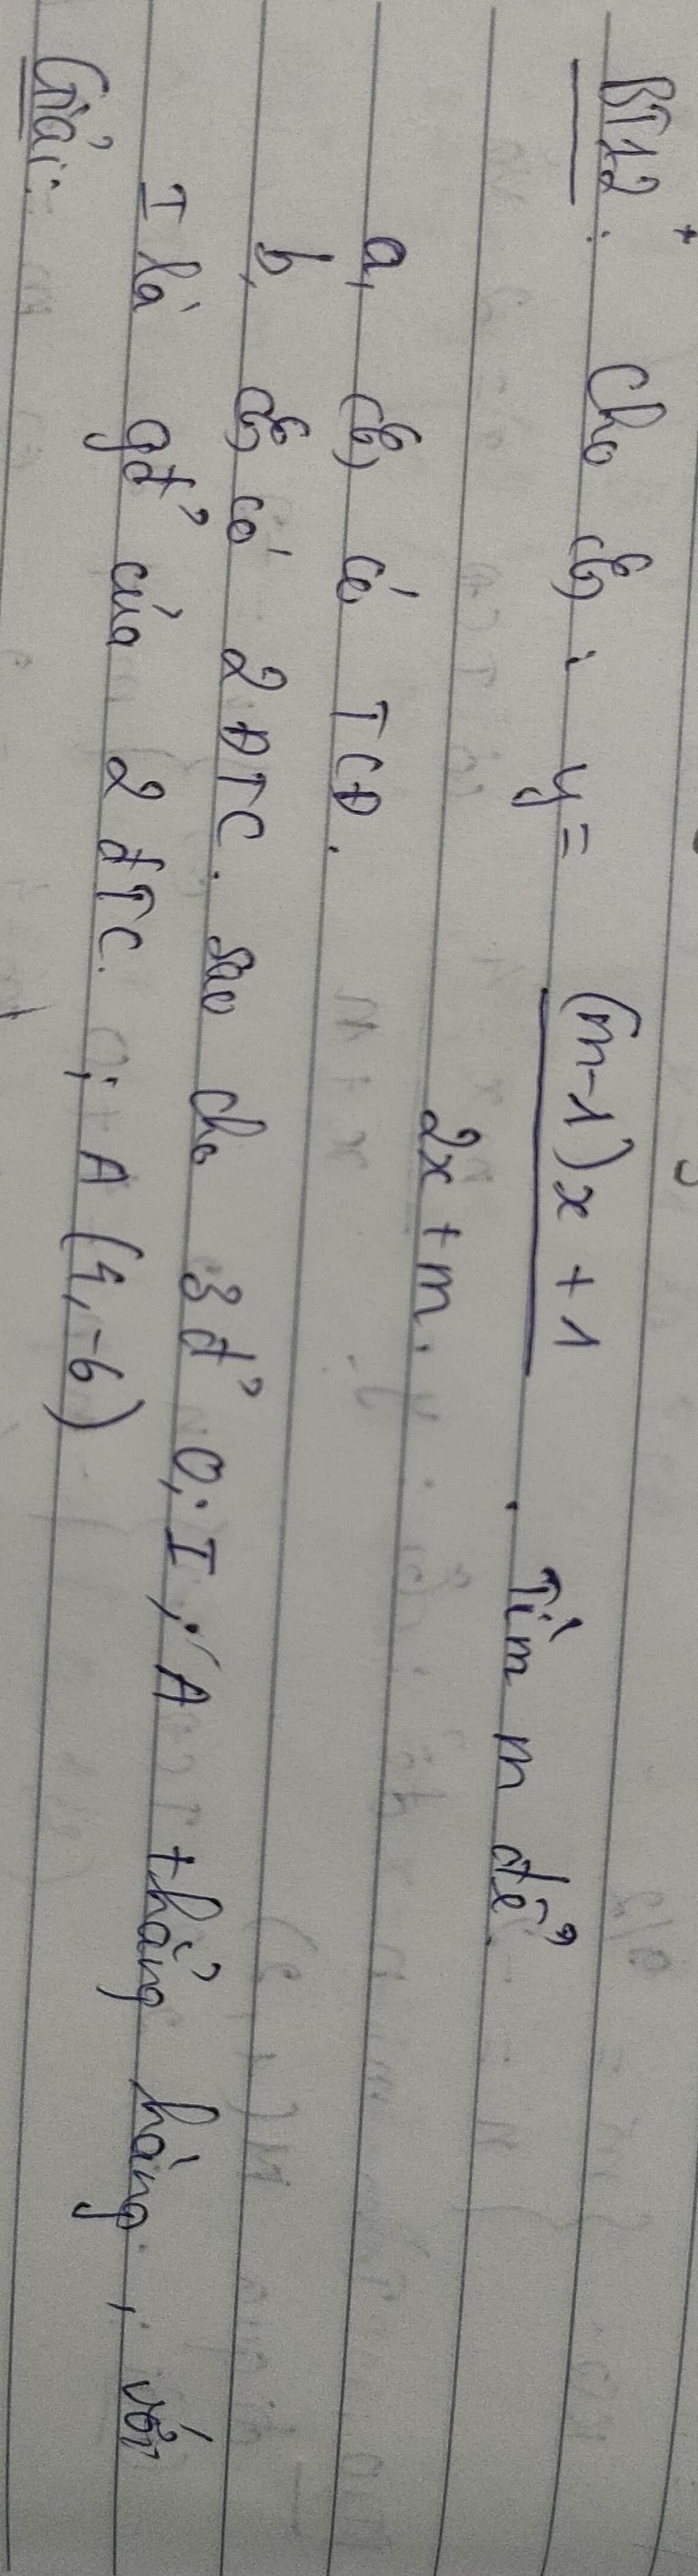 BT12: Cho (C): y = (m-1)x + 1 / 2x + m. Tìm m để
a, (C) có TCĐ.
b, (C) có 2 ĐTC. sao cho 3 đ' O; I; A thẳng hàng, với
I là gđ' của 2 đTC. ; A (4, -6)
Giải: